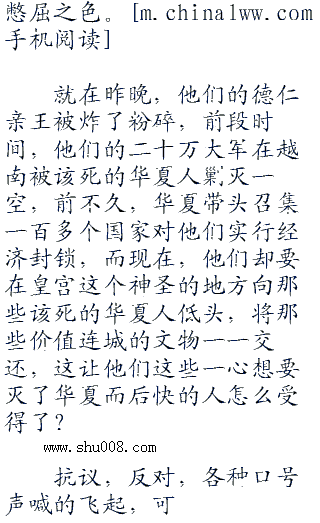 憋屈之色。[m.china1ww.com
手机阅读]
就在昨晚，他们的德仁
亲王被炸了粉碎，前段时
间，他们的二十万大军在越
南被该死的华夏人剿灭一
空，前不久，华夏带头召集
一百多个国家对他们实行经
济封锁，而现在，他们却要
在皇宫这个神圣的地方向那
些该死的华夏人低头，将那
些价值连城的文物一一交
还，这让他们这些一心想要
灭了华夏而后快的人怎么受
得了？
www.shu008.com
抗议，反对，各种口号
声喊的飞起，可